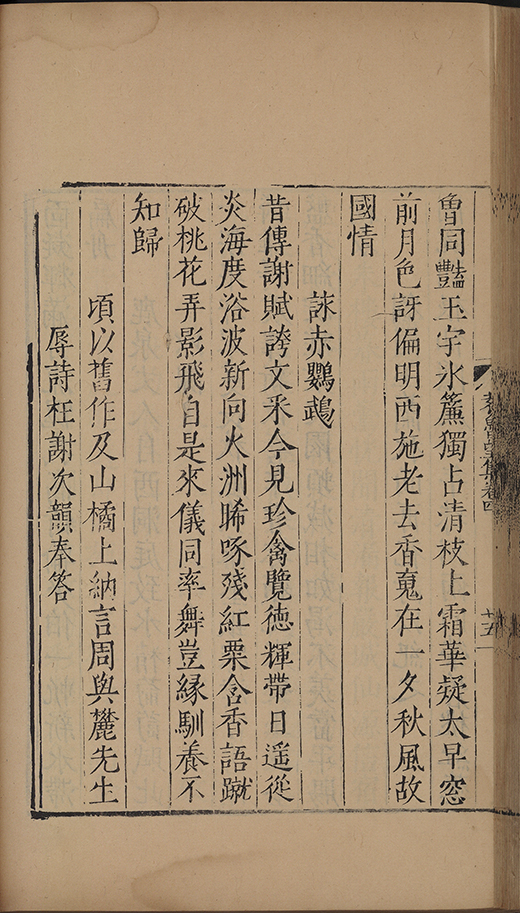 曾同豔玉宇氷簾獨占清枝上霜華疑太早窓
前月色訝偏明西施老去香䰟在一夕秋風故
國情
詠赤鸚鵡
昔傳謝賦誇文釆今見珍禽覽徳輝帶日遥從
炎海度浴波新向火洲晞啄殘紅粟含香語蹴
破桃花弄影飛自是來儀同率舞豈縁馴養不
知歸
頃以舊作及山橘上納言周與麓先生
辱詩枉謝次韻奉答